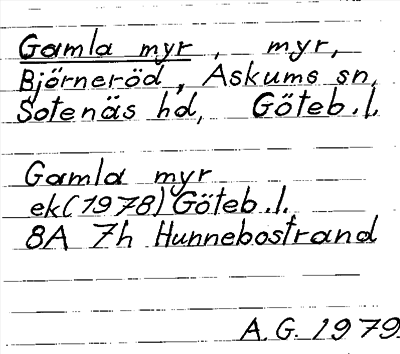 Gamla myr, myr,
Björneröd, Askums sn,
Sotenäs hd, Göteb.l.
Gamla myr
ek (1978) Göteb.l.
8A 7h Hunnebostrand
A.G. 1979.